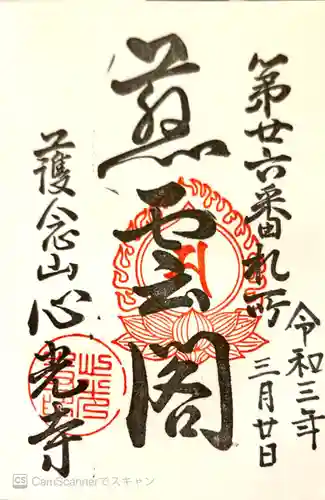 第廿六番札所
令和三年
三月廿日
慈雲閣
護念山心光寺
CS CamScannerでスキャン